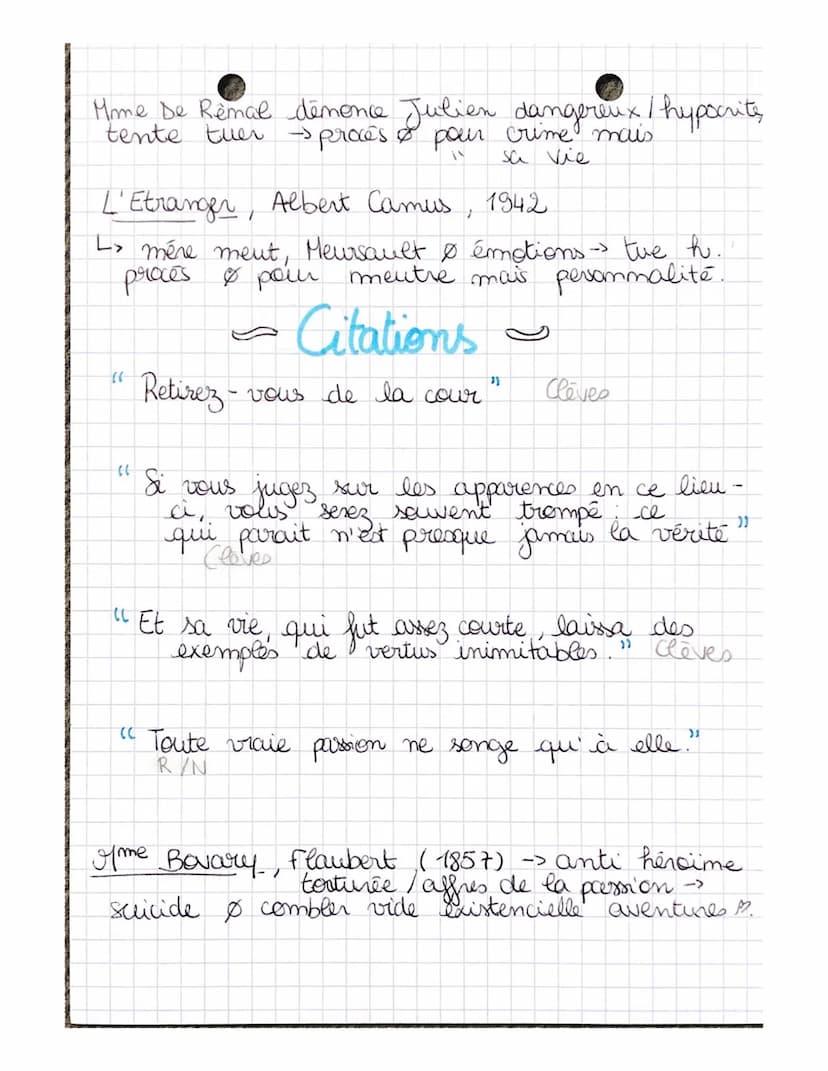 Mme De Rênal dénonce Julien dangereux / hypocrite,
tente tuer → procès ø pour crime mais
" sa vie
L'Etranger, Albert Camus, 1942
↳ mère meut, Meursault ø émotions → tue h.
procès ø pour meutre mais personnalité.
~ Citations ~
" Retirez-vous de la cour " Clèves
" Si vous jugez sur les apparences en ce lieu-
ci, vous serez souvent trompé : ce
qui parait n'est presque jamais la vérité "
Clèves
" Et sa vie, qui fut assez courte, laissa des
exemples de vertus inimitables. " Clèves
" Toute vraie passion ne songe qu'à elle. "
R/N
Mme Bovary, Flaubert (1857) → anti héroïne
torturée / affres de la passion →
suicide ø combler vide existencielle aventures ♡.